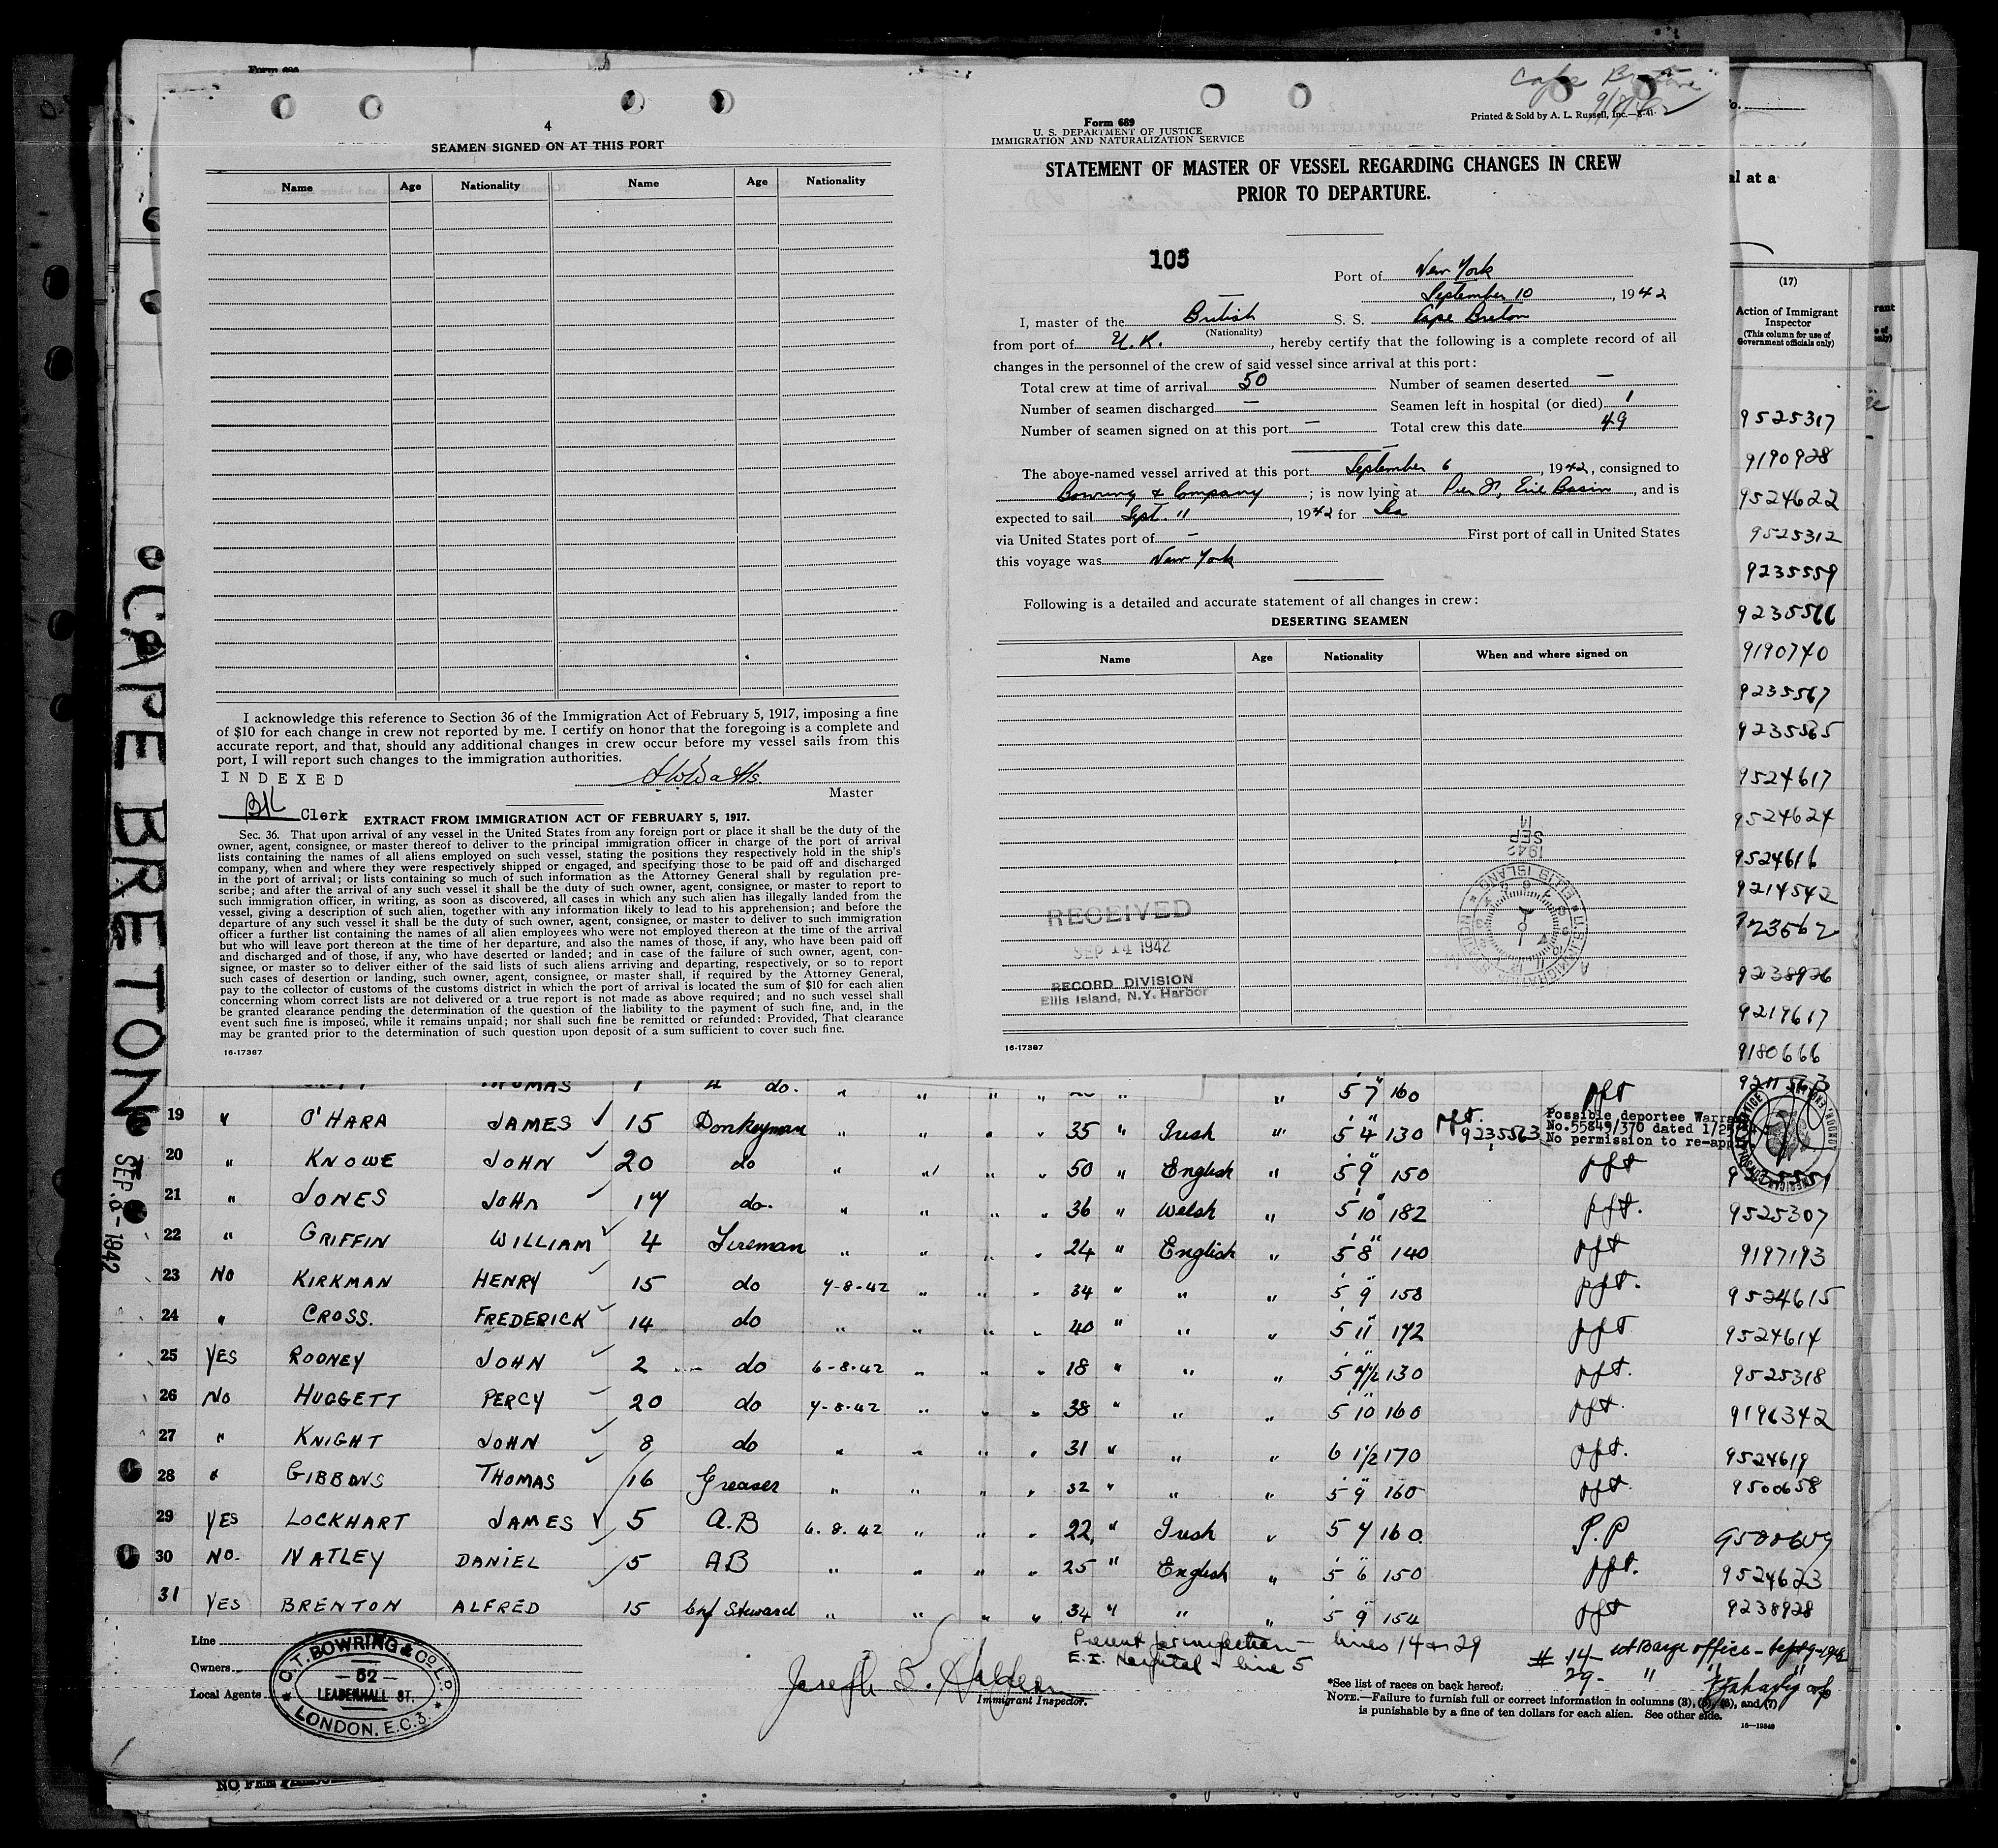 4
SEAMEN SIGNED ON AT THIS PORT
Name Age Nationality Name Age Nationality
I acknowledge this reference to Section 36 of the Immigration Act of February 5, 1917, imposing a fine
of $10 for each change in crew not reported by me. I certify on honor that the foregoing is a complete and
accurate report, and that, should any additional changes in crew occur before my vessel sails from this
port, I will report such changes to the immigration authorities.
INDEXED
Master
Clerk
EXTRACT FROM IMMIGRATION ACT OF FEBRUARY 5, 1917.
Sec. 36. That upon arrival of any vessel in the United States from any foreign port or place it shall be the duty of the
owner, agent, consignee, or master thereof to deliver to the principal immigration officer in charge of the port of arrival
lists containing the names of all aliens employed on such vessel, stating the positions they respectively hold in the ship's
company, when and where they were respectively shipped or engaged, and specifying those to be paid off and discharged
in the port of arrival; or lists containing so much of such information as the Attorney General shall by regulation pre-
scribe; and after the arrival of any such vessel it shall be the duty of such owner, agent, consignee, or master to report to
such immigration officer, in writing, as soon as discovered, all cases in which any such alien has illegally landed from the
vessel, giving a description of such alien, together with any information likely to lead to his apprehension; and before the
departure of any such vessel it shall be the duty of such owner, agent, consignee, or master to deliver to such immigration
officer a further list containing the names of all alien employees who were not employed thereon at the time of the arrival
but who will leave port thereon at the time of her departure, and also the names of those, if any, who have been paid off
and discharged and of those, if any, who have deserted or landed; and in case of the failure of such owner, agent, con-
signee, or master so to deliver either of the said lists of such aliens arriving and departing, respectively, or so to report
such cases of desertion or landing, such owner, agent, consignee, or master shall, if required by the Attorney General,
pay to the collector of customs of the customs district in which the port of arrival is located the sum of $10 for each alien
concerning whom correct lists are not delivered or a true report is not made as above required; and no such vessel shall
be granted clearance pending the determination of the question of the liability to the payment of such fine, and, in the
event such fine is imposed, while it remains unpaid; nor shall such fine be remitted or refunded: Provided, That clearance
may be granted prior to the determination of such question upon deposit of a sum sufficient to cover such fine.
16-17387
Form 689
U. S. DEPARTMENT OF JUSTICE
IMMIGRATION AND NATURALIZATION SERVICE
Printed & Sold by A. L. Russell, Inc.—8-41
STATEMENT OF MASTER OF VESSEL REGARDING CHANGES IN CREW
PRIOR TO DEPARTURE.
105
Port of New York
September 10, 1942
I, master of the British S. S. Cape Breton
(Nationality)
from port of U. K., hereby certify that the following is a complete record of all
changes in the personnel of the crew of said vessel since arrival at this port:
Total crew at time of arrival 50 Number of seamen deserted —
Number of seamen discharged — Seamen left in hospital (or died) 1
Number of seamen signed on at this port — Total crew this date 49
The above-named vessel arrived at this port September 6, 1942, consigned to
Bowring & Company; is now lying at Pier , Erie Basin, and is
expected to sail Sept. 11, 1942 for Sea
via United States port of — First port of call in United States
this voyage was New York
Following is a detailed and accurate statement of all changes in crew:
DESERTING SEAMEN
Name Age Nationality When and where signed on
1942 SEP 14
RECEIVED
SEP 14 1942
RECORD DIVISION
Ellis Island, N.Y. Harbor
16-17387
al at a
(17)
Action of Immigrant
Inspector
(This column for use of
Government officials only)
9525317
9190928
9524622
9525312
9235559
9235566
9190740
9235567
9235565
9524617
9524624
9524616
9214542
9238926
9219617
9180666
CAPE BRETON
SEP. 8-1942
THOMAS 1 do. " " " " " 5 7 160 pft
19 " O'HARA JAMES 15 Donkeyman " " " " 35 " Irish " 5 4 130 9235563
Possible deportee Warra
No.55849/370 dated 1/2
No permission to re-app
20 " KNOWE JOHN 20 do " " " " 50 " English " 5 9 150 pft
21 " JONES JOHN 17 do. " " " " 36 " Welsh " 5 10 182 pft. 9525307
22 " GRIFFIN WILLIAM 4 Fireman " " " " 24 " English " 5 8 140 pft 9197193
23 NO KIRKMAN HENRY 15 do 7-8-42 " " " 34 " " " 5 9 158 pft. 9524615
24 " CROSS. FREDERICK 14 do " " " " 40 " " " 5 11 172 pft 9524614
25 YES ROONEY JOHN 2 do 6-8-42 " " " 18 " " " 5 4½ 130 pft. 9525318
26 NO HUGGETT PERCY 20 do 7-8-42 " " " 38 " " " 5 10 160 pft. 9196342
27 " KNIGHT JOHN 8 do " " " " 31 " " " 6 1½ 170 pft. 9524619
28 " GIBBONS THOMAS 16 Greaser " " " " 32 " " " 5 9 160 pft. 9500658
29 YES LOCKHART JAMES 5 A.B 6.8.42 " " " 22 " Irish " 5 7 160 P.P 9500659
30 NO. NATLEY DANIEL 5 AB " " " " 25 " English " 5 6 150 pft. 9524623
31 YES BRENTON ALFRED 15 Chf Steward " " " " 34 " " " 5 9 154 pft 9238928
Line
Owners
Local Agents
C.T. BOWRING & CO. LD.
62
LEADENHALL ST.
LONDON, E.C.3.
Immigrant Inspector.
Present for inspection - lines 14 & 29
E.I. Hospital - line 5
# 14 at Barge office - Sept 9-1942
29- " "
*See list of races on back hereof.
NOTE.—Failure to furnish full or correct information in columns (3), (5), (6), and (7)
is punishable by a fine of ten dollars for each alien. See other side.
16-19840